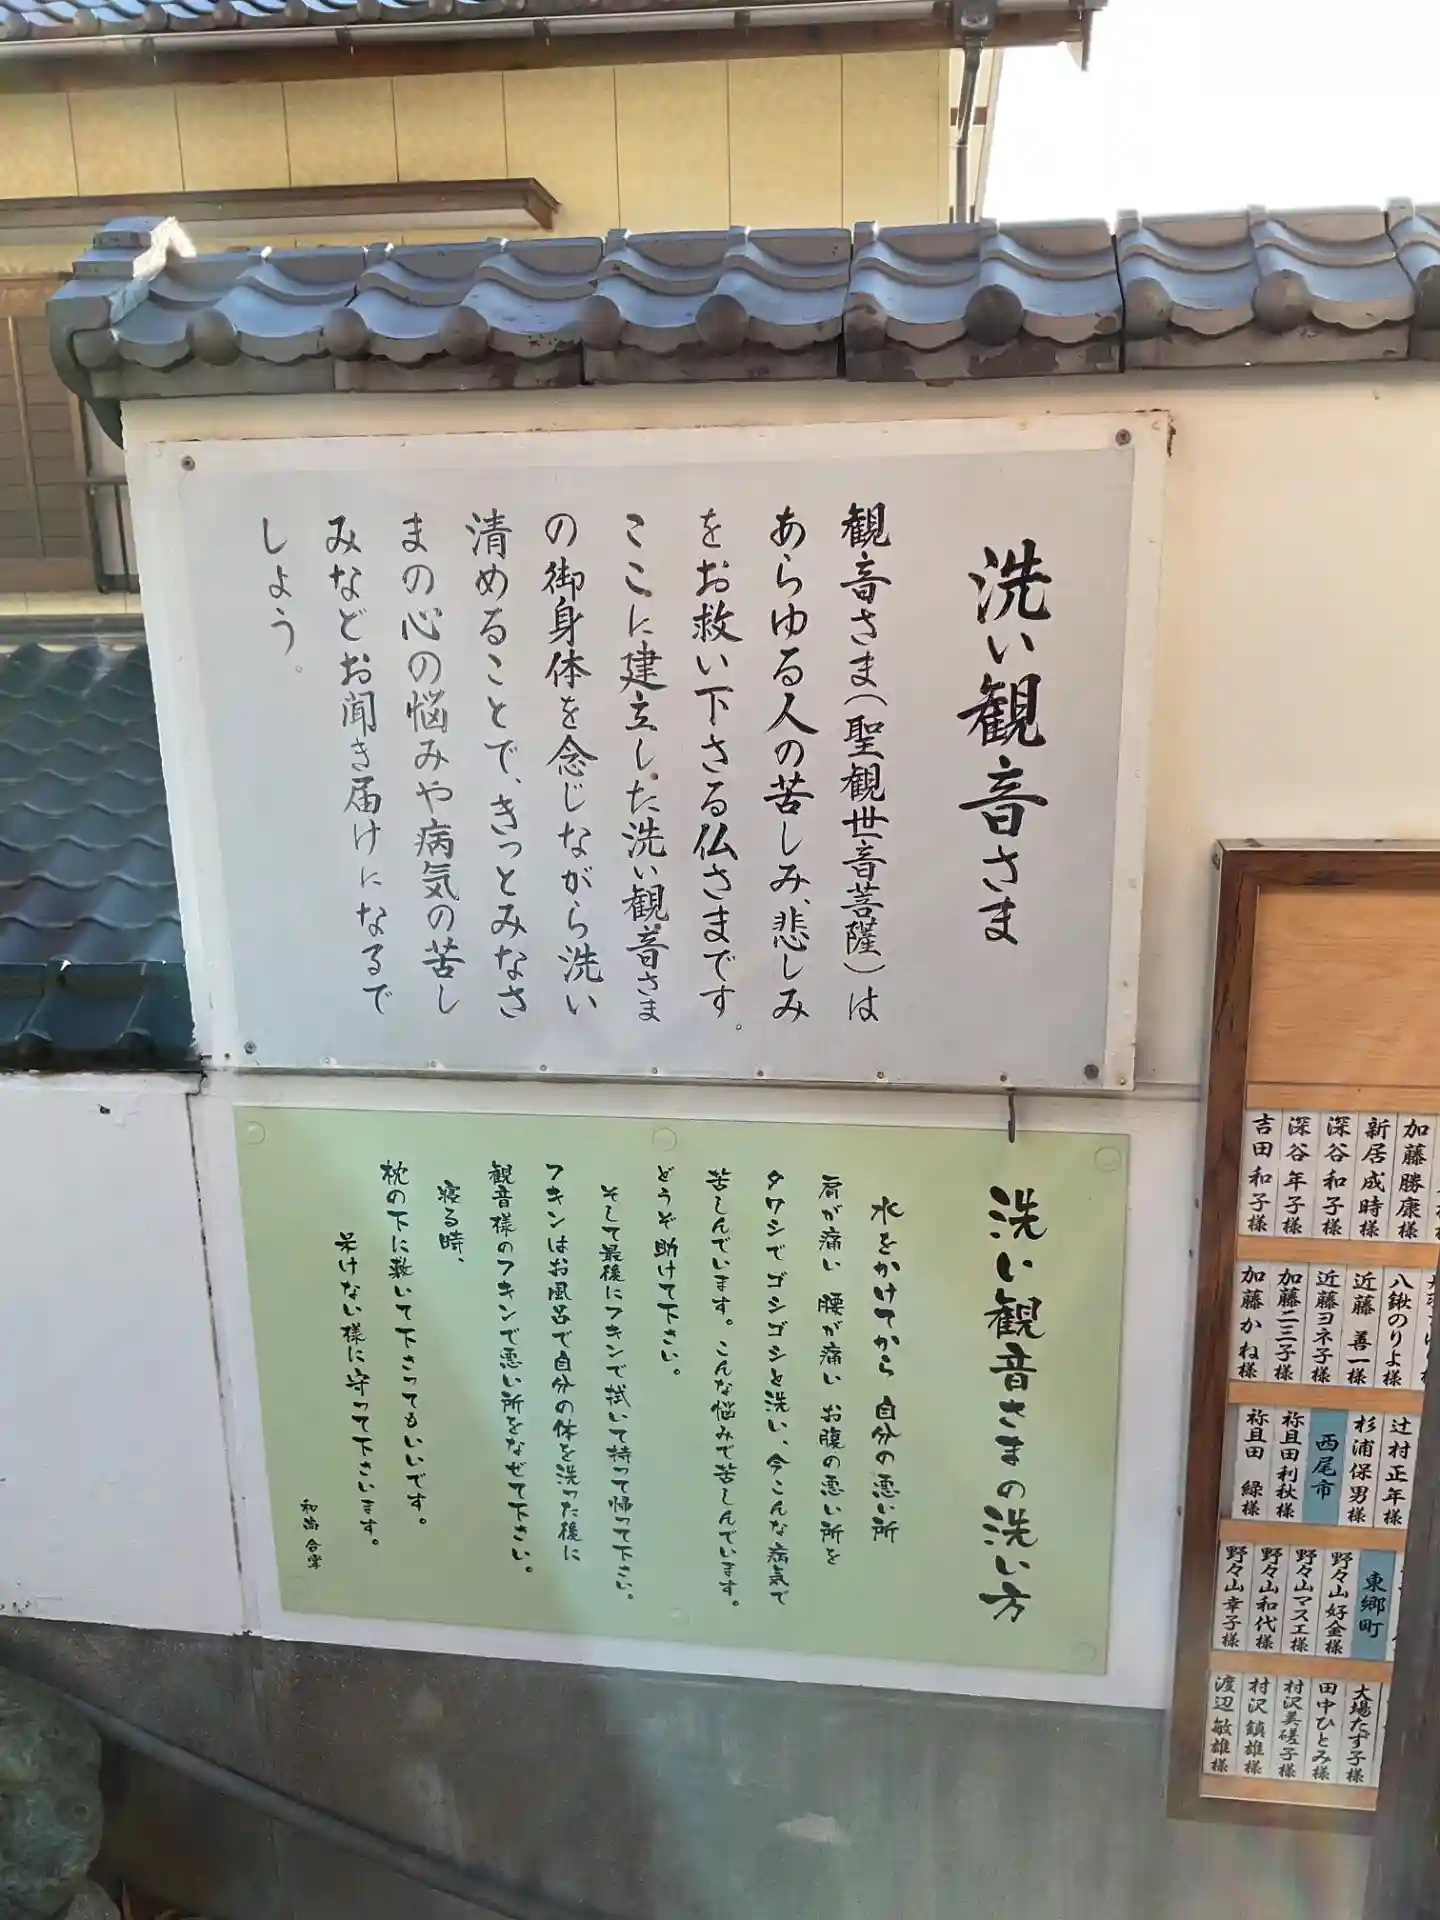 洗い観音さま
観音さま(聖観世音菩薩)は
あらゆる人の苦しみ、悲しみ
をお救い下さる仏さまです。
ここに建立した洗い観音さま
の御身体を念じながら洗い
清めることで、きっとみなさ
まの心の悩みや病気の苦し
みなどお聞き届けになるで
しょう。
洗い観音さまの洗い方
水をかけてから 自分の悪い所
肩が痛い 腰が痛い お腹の悪い所を
タワシでゴシゴシと洗い、今こんな病気で
苦しんでいます。こんな悩みで苦しんでいます。
どうぞ助けて下さい。
そして最後にフキンで拭いて持って帰って下さい。
フキンはお風呂で自分の体を洗った後に
観音様のフキンで悪い所をなぜて下さい。
寝る時、
枕の下に敷いて下さってもいいです。
呆けない様に守って下さいます。
和尚 合掌
加藤勝康様
新居成時様
深谷和子様
深谷年子様
吉田和子様
八鍬のりよ様
近藤善一様
近藤ヨネ子様
加藤二三子様
加藤かね様
辻村正年様
杉浦保男様
西尾市
祢且田利秋様
祢且田 緑様
東郷町
野々山好金様
野々山マスエ様
野々山和代様
野々山幸子様
大場たず子様
田中ひとみ様
村沢美磋子様
村沢鎮雄様
渡辺敏雄様